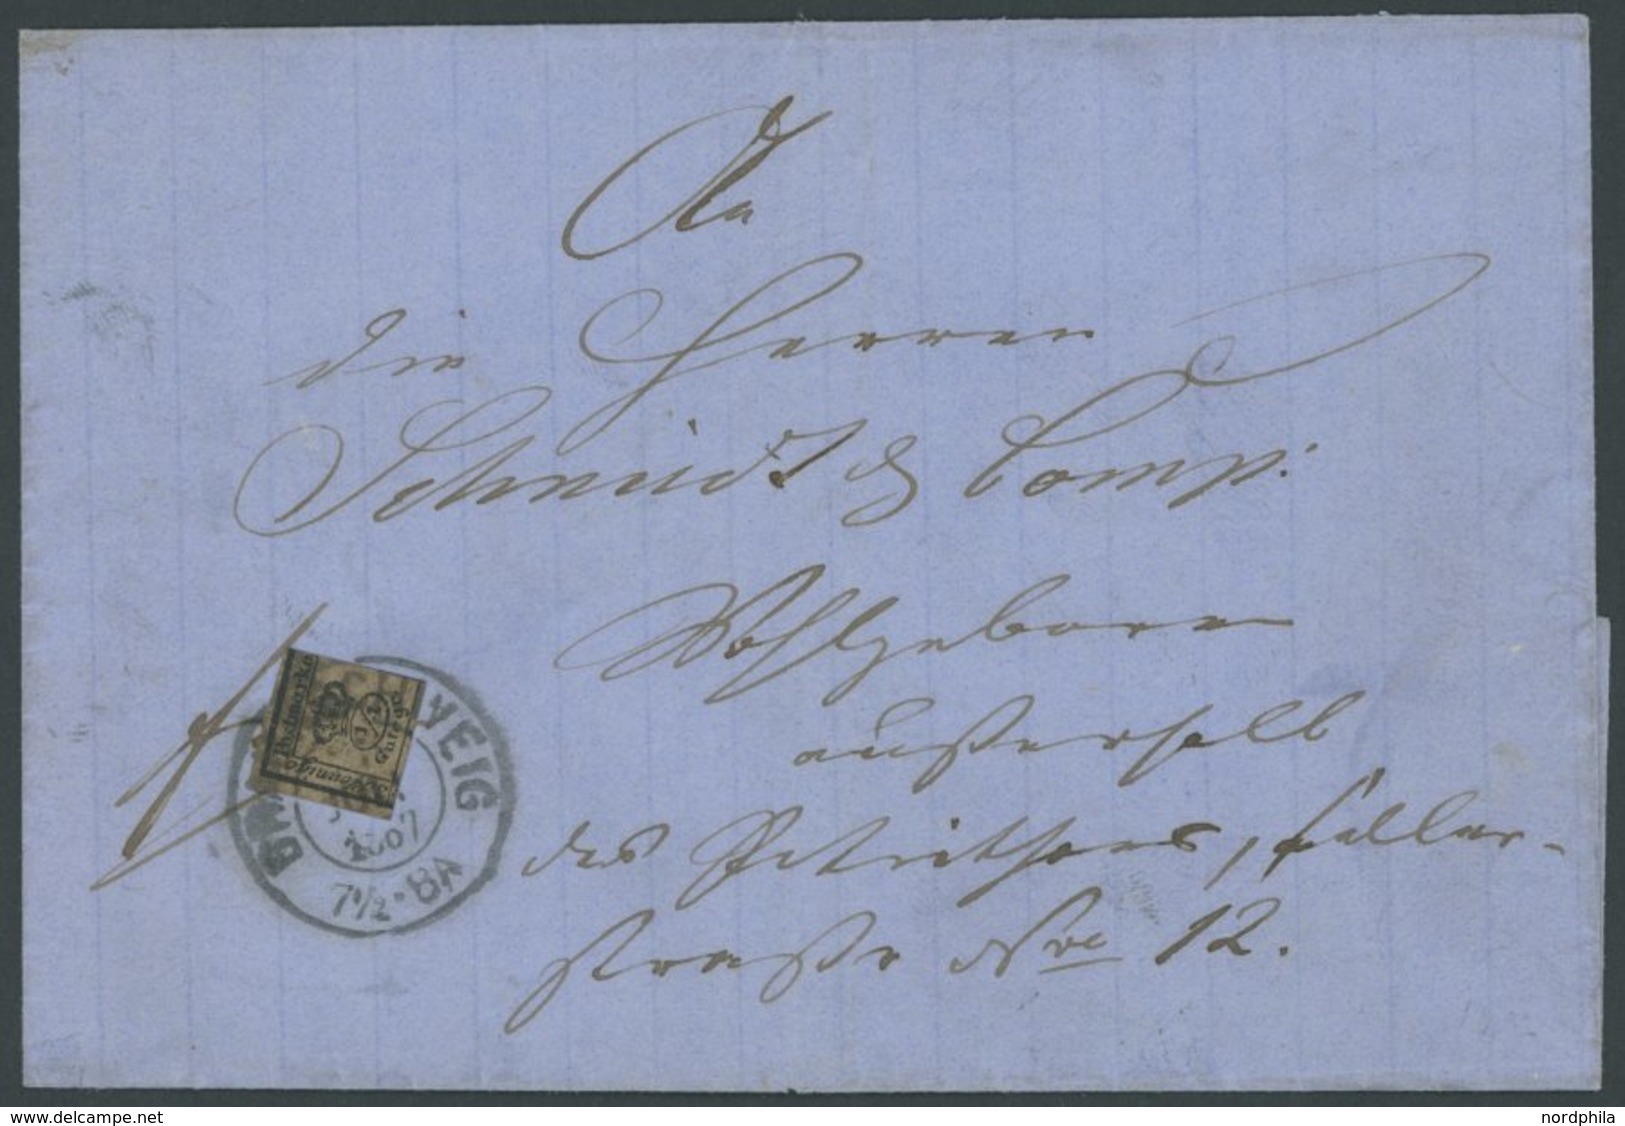 An
die Herren
Schmidt & Comp.
Wohlgeboren
außerhalb
des Petrithores, Celler-
straße No 12.
fr
Postmarke
1/4
Guteg
BRA VEIG
1867
7½-8A
www.delcampe.net
nordphila